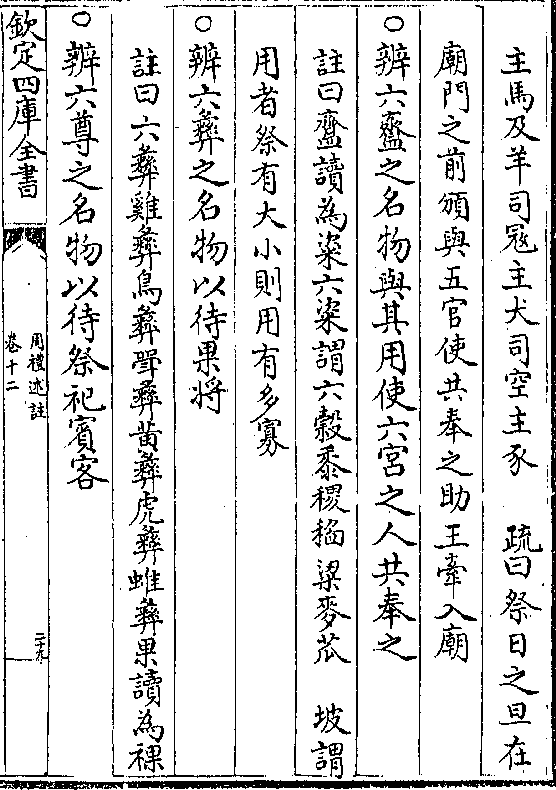 主馬及羊司冦主犬司空主豕　疏曰祭日之旦在
廟門之前頒與五官使共奉之助王牽入廟
○辨六齍之名物與其用使六宮之人共奉之
註曰齍讀為粢六粢謂六穀黍稷稻粱麥苽　坡謂
用者祭有大小則用有多寡
○辨六彝之名物以待果將
註曰六彝雞彝鳥彝斝彝黄彝虎彝蜼彝果讀為祼
○辨六尊之名物以待祭祀賓客
欽定四庫全書
周禮述註
卷十二
二十九